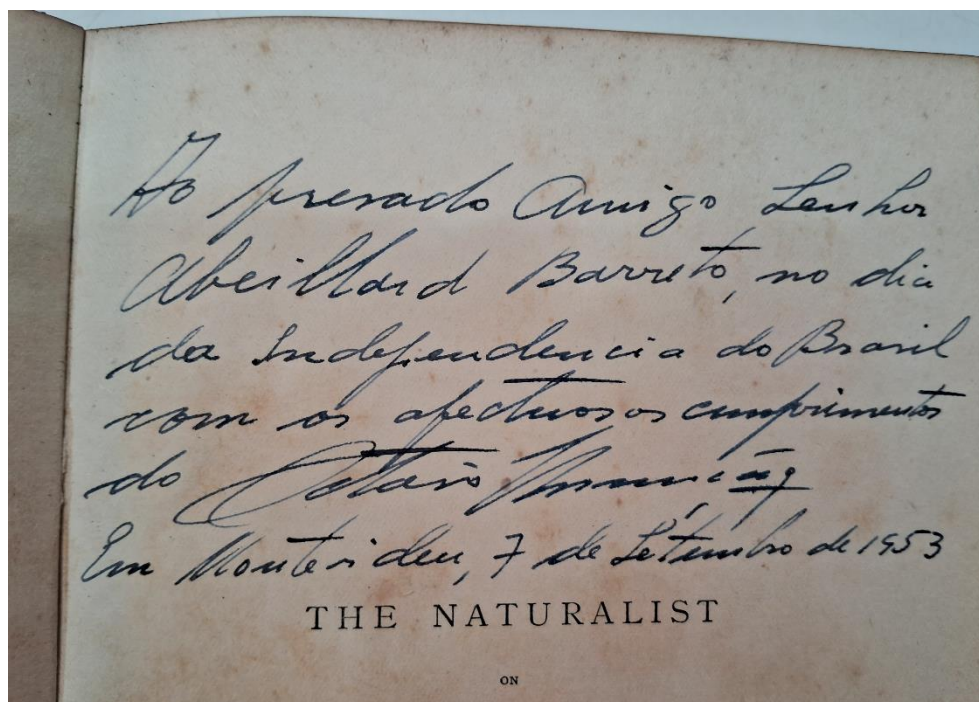 Ao presado Amigo Senhor
Abeillard Barreto, no dia
da Independencia do Brasil
com os afectuosos cumprimentos
do Octavio
Em Montevideu, 7 de Setembro de 1953
THE NATURALIST
ON